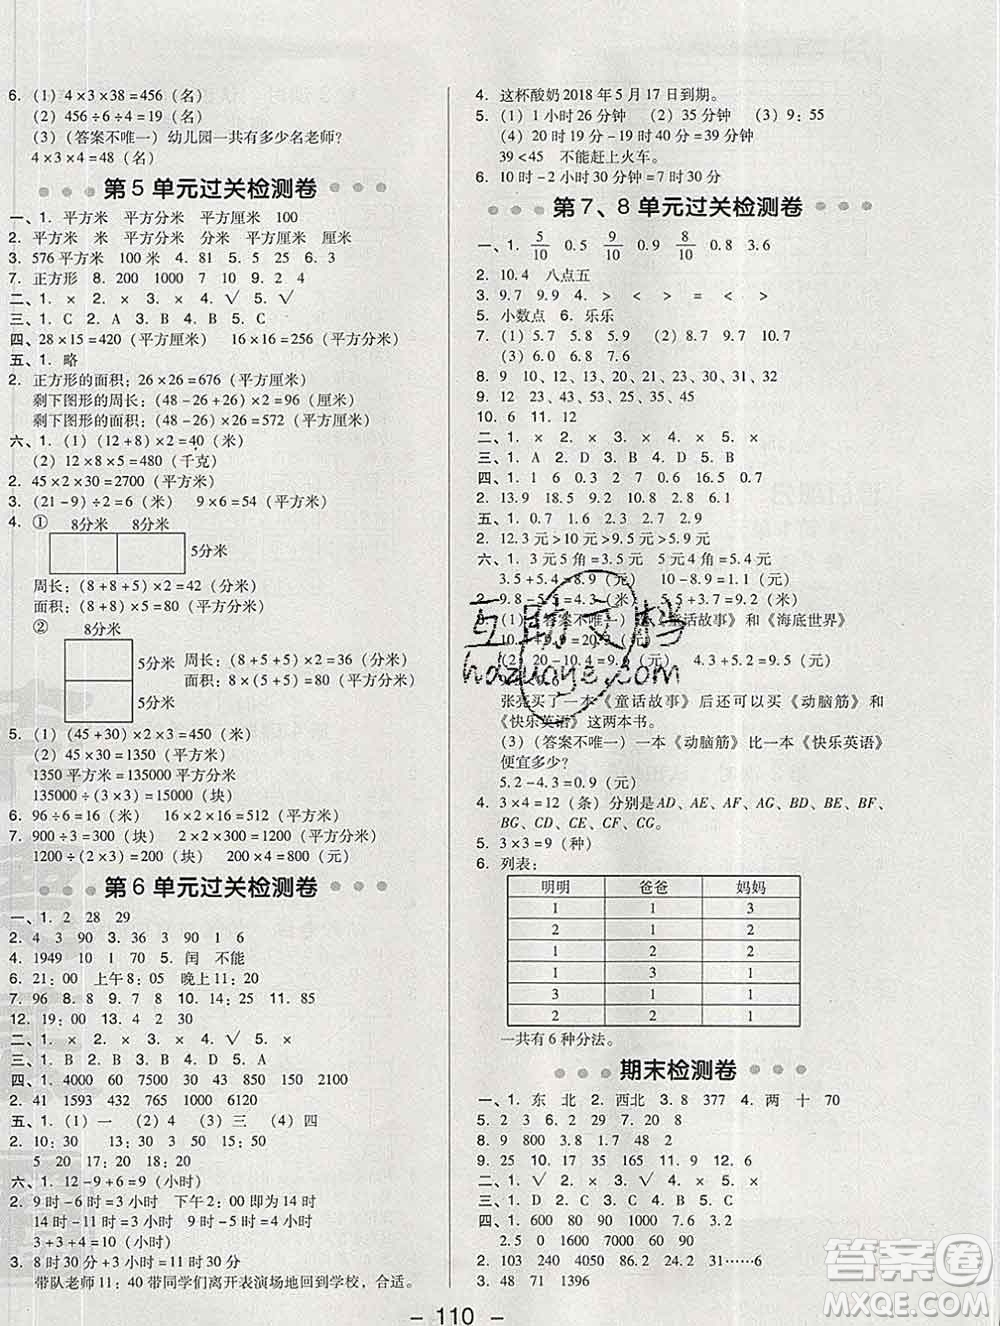 6. (1) 4×3×38=456 (名)
(2) 456÷6÷4=19 (名)
(3) (答案不唯一) 幼儿园一共有多少名老师?
4×3×4=48 (名)
第 5 单元过关检测卷
一、1. 平方米 平方分米 平方厘米 100
2. 平方米 米 平方分米 分米 平方厘米 平方米
3. 576 平方米 100 米 4. 81 5. 5 6. 3
7. 正方形 8. 200 1000 7 10 9. 2 4
二、1. × 2. × 3. × 4. √ 5. √
三、1. C 2. A 3. B 4. C 5. A
四、28×15=420 (平方厘米) 16×16=256 (平方分米)
五、1. 略
2. 正方形的面积: 26×26=676 (平方厘米)
剩下图形的周长: (48-26+26)×2=96 (厘米)
剩下图形的面积: (48-26)×26=572 (平方厘米)
六、1. (1) (12+8)×2=40 (米)
(2) 12×8×5=480 (千克)
2. 45×2×30=2700 (平方米)
3. (21-9)÷2=6 (米) 9×6=54 (平方米)
4. ① 8分米 8分米
5分米
周长: (8+8+5)×2=42 (分米)
面积: (8+8)×5=80 (平方分米)
② 8分米
5分米 周长: (8+5+5)×2=36 (分米)
面积: (5+5)×8=80 (平方分米)
5分米
5. (1) (45+30)×2×3=450 (米)
(2) 45×30=1350 (平方米)
1350 平方米=135000 平方分米
135000÷(5×2)=13500 (块)
6. 96÷6=16 (米) 16×2×16=512 (平方米)
7. 900÷3=300 (块) 2×2×300=1200 (平方分米)
1200÷(2×3)=200 (块) 200×4=800 (元)
第 6 单元过关检测卷
一、1. 2 28 29
2. 4 3 90 3. 36 4 90 1 6
4. 1949 10 1 70 5. 闰 不能
6. 21:00 上午8:05 晚上11:20
7. 96 8. 8 9. 7 8 10. 14:25 11. 85
12. 19:00 13. 4 2 30
二、1. × 2. × 3. × 4. √ 5. ×
三、1. B 2. B 3. B 4. D 5. A
四、1. 4000 60 7500 30 50 60
2. 41 1593 432 760 1040 6120
五、1. (1) 一 (2) 4 (3) 三 (4) 四
2. 10:30 13:30 50 3:50
5 20 17:20 15:40
六、1. 12-9+6=9 (小时)
2. 9 时-6 时=3 小时 下午2:00 即为 14 时
14 时-11 时=3 小时 9 时-5 时=4 小时
3+3+4=10 (小时)
3. 8 时 30 分+3 小时=11 时 30 分
带队老师 11:40 带同学们离开表演场地回到学校，合适。
4. 这杯酸奶 2018 年 5 月 17 日到期。
5. (1) 1 小时 26 分钟 (2) 35 分钟 (3) 9:55
(4) 20 时 19 分-19 时 40 分=39 分钟
39<45 不能赶上火车。
6. 10 时-2 小时 30 分钟=7 时 30 分
第 7、8 单元过关检测卷
一、1. 5/10 0.5 9/10 0.9 8/10 0.8 3.6
2. 10.4 八点五
3. 9.7 9.9 4. > < > = < >
5. 小数点 6. 乐乐
7. (1) 5.7 5.8 (2) 9.7 9.8 10.7
(3) 6.0 6.8 7.6
8. 9 10、12、13、20、21、23、30、31、32
9. 12 23、43、53、25、45、35
10. 6 11. 12
二、1. × 2. × 3. × 4. × 5. ×
三、1. C 2. D 3. B 4. C 5. D
四、1. 1 6 0.3 1.2 0.7 0.5 1 0.6
2. 13.9 9.8 3.8 7.4 16.5 7.7
五、1. 0.7 1.6 1.8 2.3 2.7 2.9
2. 12.3 元>10 元>9.5 元>8.9 元>5.9 元
六、1. 3 元 5 角=3.5 元 5 元 4 角=5.4 元
3.5+5.4=8.9 (元) 10-8.9=1.1 (元)
2. 9.8-5.5=4.3 (米) 5.5+3.7=9.2 (米)
(1) (答案不唯一) 《童话故事》和《海底世界》
(2) 20-10.4=9.6 (元) 4.3+5.2=9.5 (元)
张亮买了一本《童话故事》后还可以买《动脑筋》和
《快乐英语》这两本书。
(3) (答案不唯一) 一本《动脑筋》比一本《快乐英语》
便宜多少?
5.2-4.3=0.9 (元)
4. 3×4=12 (条) 分别是 AD、AE、AF、AG、BD、BE、BF、
BG、CD、CE、CF、CG。
5. 3×3=9 (种)
6. 列表:
明明 爸爸 妈妈
1 1 3
2 1 2
1 2 2
1 3 1
3 1 1
2 2 1
一共有 6 种分法。
期末检测卷
一、1. 东 北 2. 西北 3. 8 377 4. 两 十 70
5. 2 3 6. 2 29 7. 5 50
8. 9 800 3.8 0.6 100 9
9. 25 10. 8 600 11. 900 12. 6
二、1. × 2. √ 3. × 4. √ 5. ×
三、1. D 2. C 3. D 4. C 5. A
四、1. 600 80 900 7.6 8.8 0
2.5 0 1600 7000 65 4
2. 103 240 4050 86.2 24 22……2
3. 48 71 1396
- 110 -
互助文档
hazuoye.com
答案圈
MXQE.COM